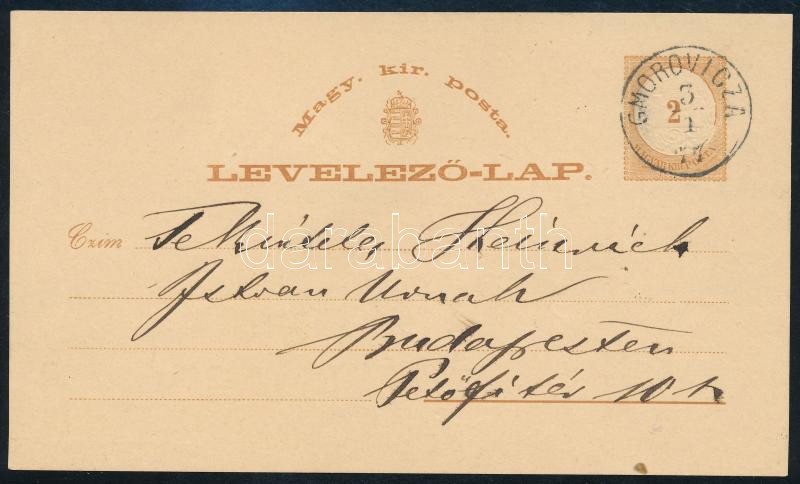 Magy. kir. posta.
LEVELEZŐ-LAP.
GMOROVICZA
3
1
77
2
MAGYAR KIR. POSTA
Czim Tekintetes Heinrich
Istvan Urnak
Budapesten
Petőfi tér 10
darabanth